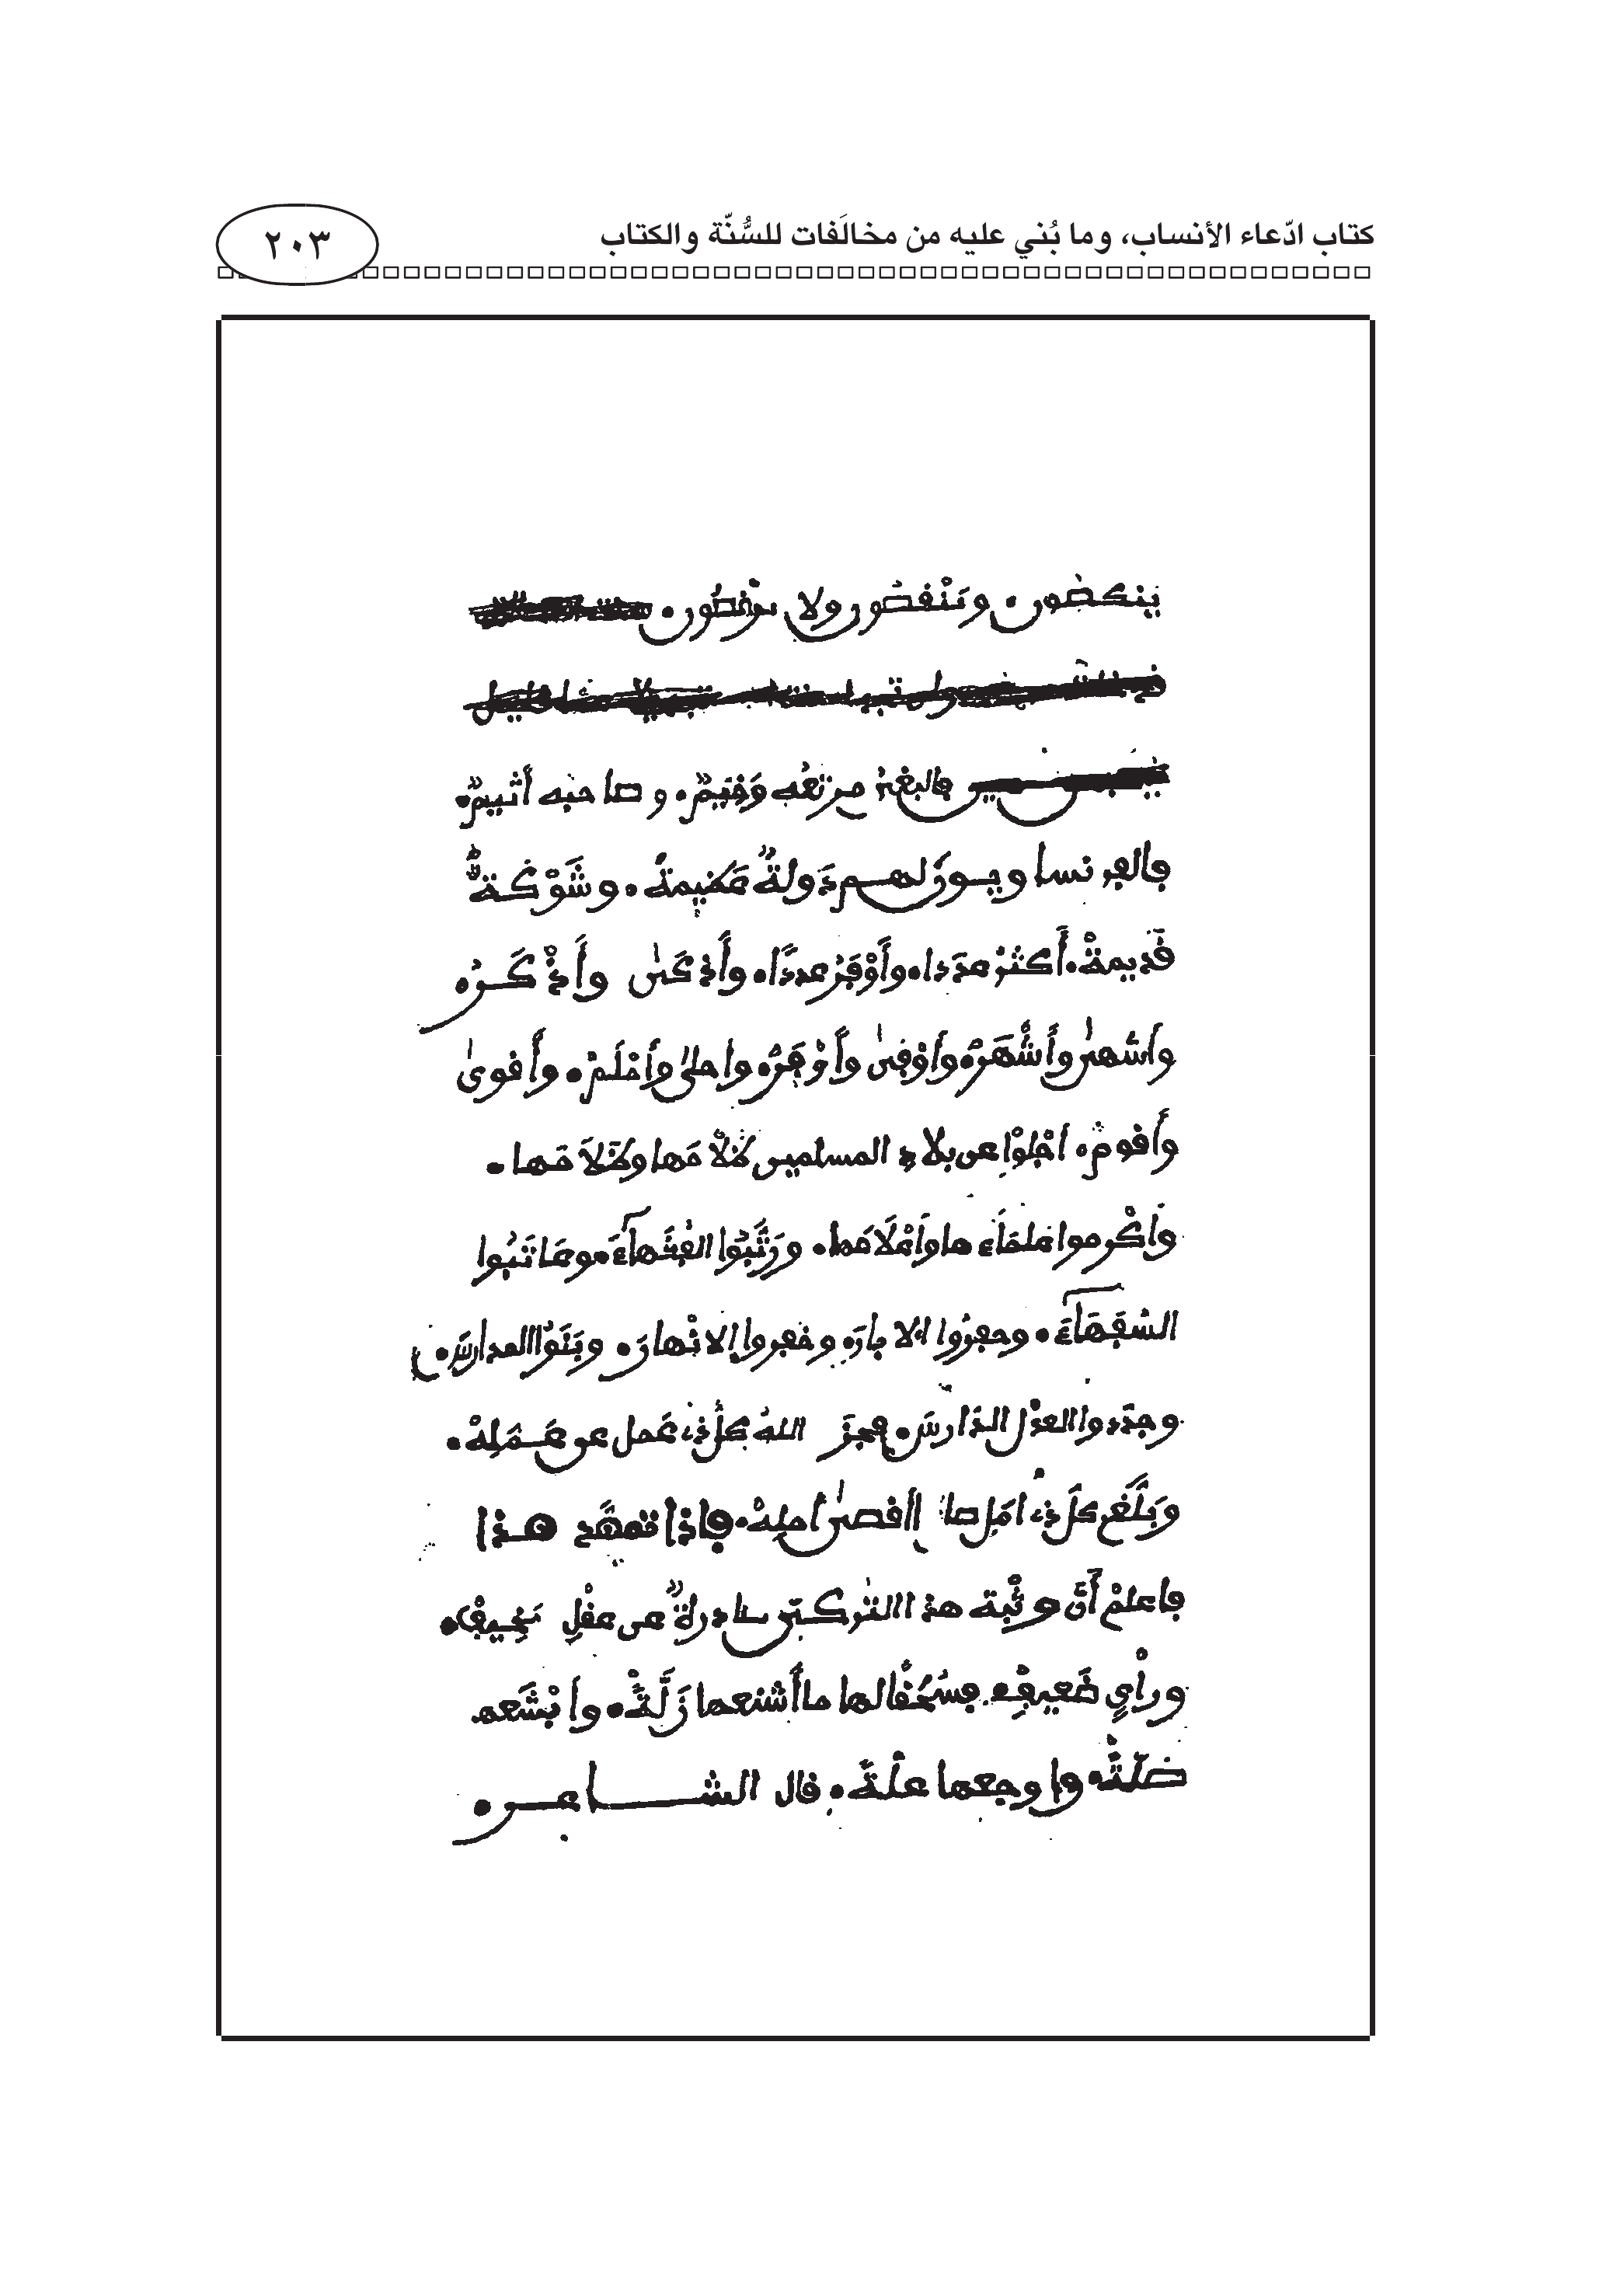 كتاب ادّعاء الأنساب، وما بُني عليه من مخالَفات للسُّنّة والكتاب
٢٠٣
وينقصون ولا
فالبغي مرتعه وخيم. وصاحبه أثيم.
فالفرنساويون لهم دولة عظيمة. وشوكة
قديمة. أكثر عددا. وأوفر عددا. وأذكى وأذكر.
وأشهى وأشهر. وأوفى وأوفر. وأحلى وأحلم. وأقوى
وأقوم. أجلوا عن بلاد المسلمين ظلامها وظلامها.
وأكرموا علماءها وأعلامها. ورتبوا الفقهاء. وعاتبوا
السفهاء. وحفروا الابار. وفجروا الانهار. وبنوا المدارس.
وجددوا العدل الدارس. فجزى الله كل ذي عمل عن عمله.
وبلغ كل ذي امل صا اقصى أمله. فإذا تمهد هذا
فاعلم أن وثبة هذا التركي صادرة عن عقل سخيف.
ورأي ضعيف. فسحقا لها ما أشنعها زلة. وأبشعها
ضلة. وأوجعها علة. قال الشاعر.